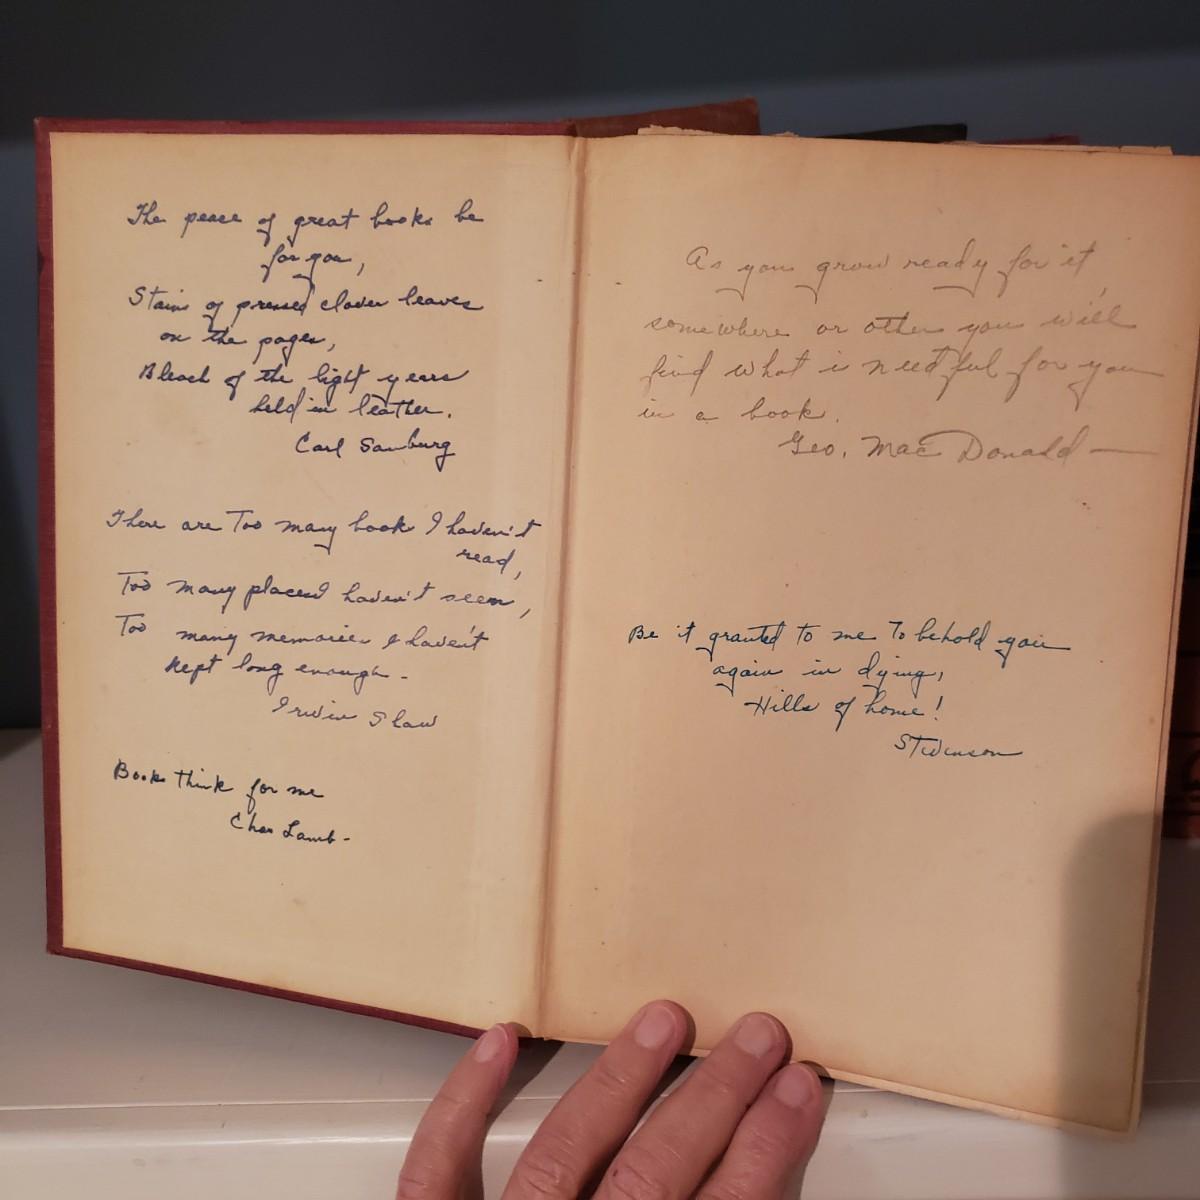 The peace of great books be
for you,
Stains of pressed clover leaves
on the pages,
Bleach of the light years
held in leather.
Carl Sanburg
There are Too many book I haven't
read,
Too many places I haven't seen,
Too many memories I haven't
kept long enough -
Irwin Shaw
Books think for me
Chas Lamb -
As you grow ready for it,
somewhere or other you will
find what is needful for you
in a book.
Geo. MacDonald —
Be it granted to me To behold you
again in dying,
Hills of home!
Stevenson